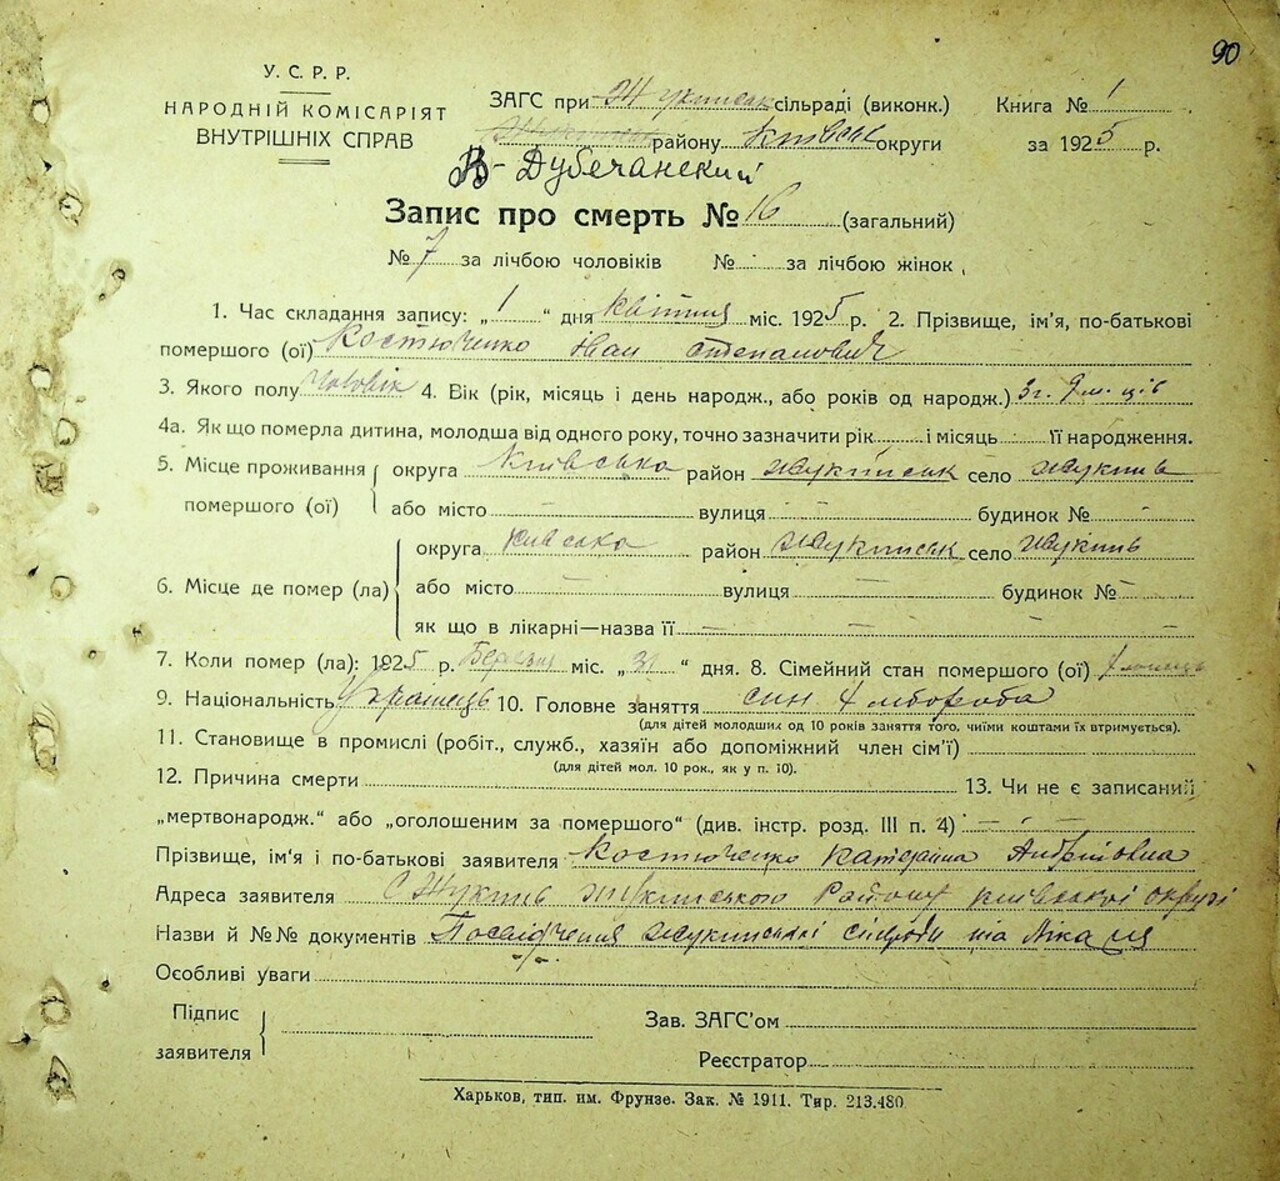 90
У. С. Р. Р.
НАРОДНІЙ КОМІСАРІЯТ
ВНУТРІШНІХ СПРАВ
ЗАГС при Жукинськ сільраді (виконк.)
Жукинськ району Київськ округи
В-Дубечанский
Книга № 1
за 1925 р.
Запис про смерть № 16 (загальний)
№ 7 за лічбою чоловіків № - за лічбою жінок
1. Час складання запису: „1“ дня Квітня міс. 1925 р. 2. Прізвище, ім'я, по-батькові
помершого (ої) Костюченко Іван Степанович
3. Якого полу Чоловік 4. Вік (рік, місяць і день народж., або років од народж.) 3 г. 9 м-ців
4а. Як що померла дитина, молодша від одного року, точно зазначити рік і місяць її народження.
5. Місце проживання помершого (ої) округа Київська район Жукинськ село Жукинь
або місто — вулиця — будинок № —
6. Місце де помер (ла) округа Київська район Жукинськ село Жукинь
або місто — вулиця — будинок № —
як що в лікарні—назва її — — — — —
7. Коли помер (ла): 1925 р. Березня міс. „31“ дня. 8. Сімейний стан помершого (ої)
9. Національність Українець 10. Головне заняття син хлібороба
(для дітей молодших од 10 років заняття того, чиїми коштами їх втримується).
11. Становище в промислі (робіт., служб., хазяїн або допоміжний член сім'ї)
(для дітей мол. 10 рок., як у п. 10).
12. Причина смерти 13. Чи не є записаний
„мертвонародж.“ або „оголошеним за помершого“ (див. інстр. розд. III п. 4) — — —
Прізвище, ім'я і по-батькові заявителя Костюченко Катерина Андріївна
Адреса заявителя С Жукинь Жукинського Району Київської округи
Назви й №№ документів Посвідчення Жукинської сільради та
Особливі уваги
Підпис заявителя
Зав. ЗАГС'ом
Реєстратор
Харьков, тип. им. Фрунзе. Зак. № 1911. Тир. 213.480